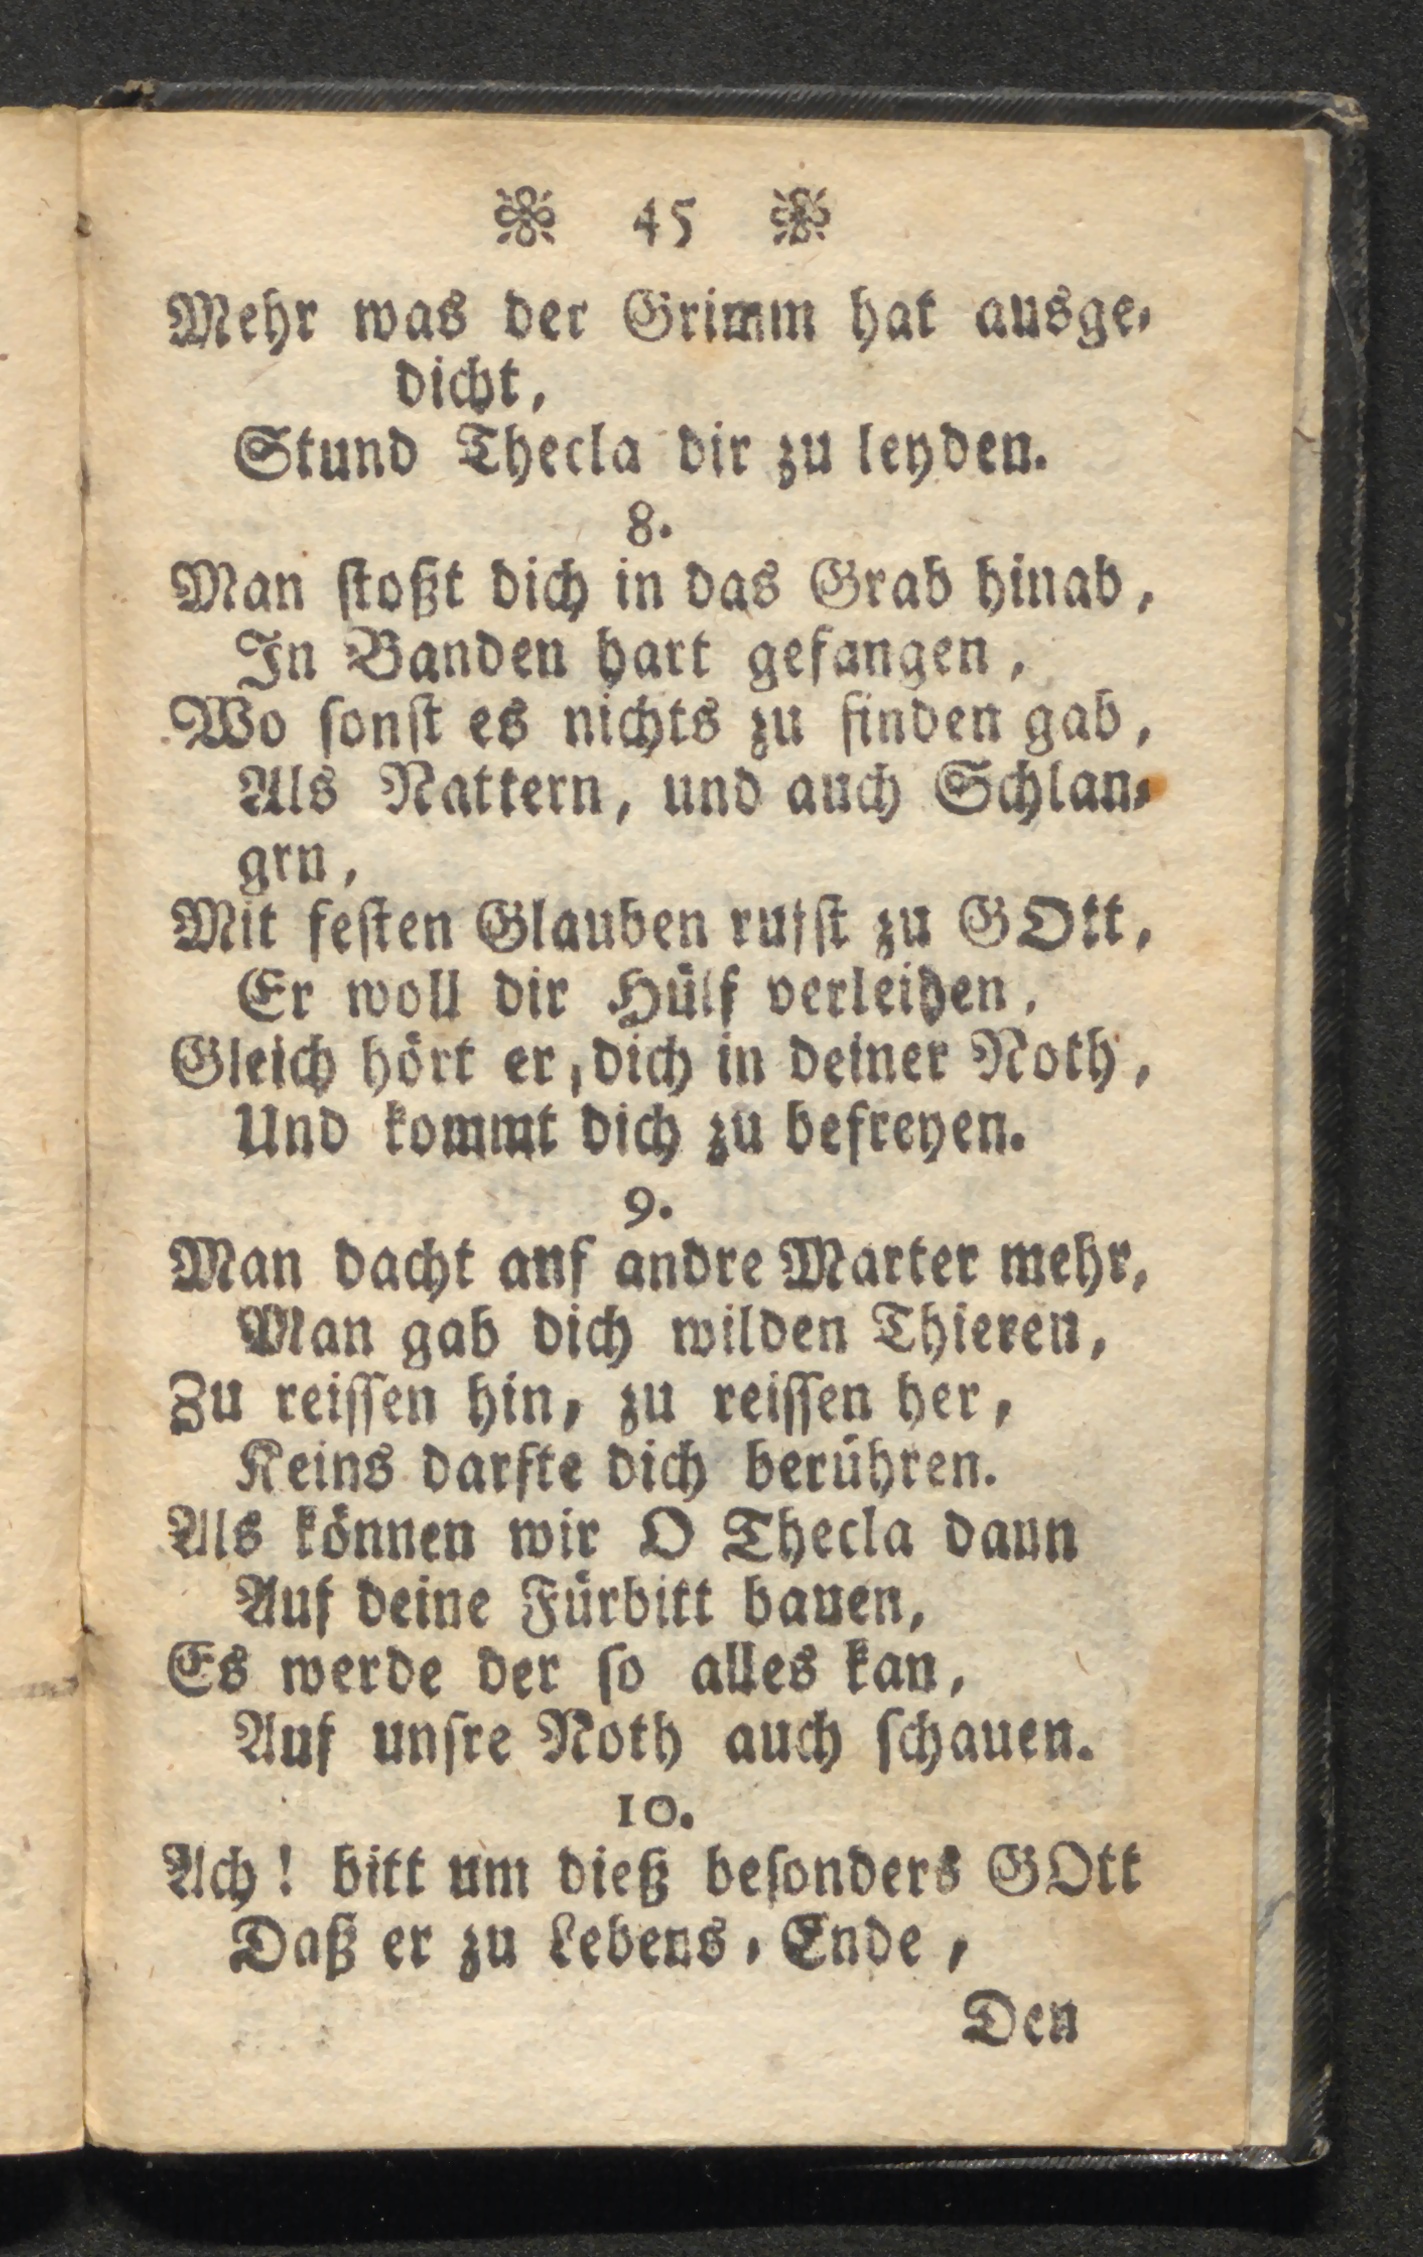 ❀ 45 ❀
Mehr was der Grimm hat ausge-
dicht,
Stund Thecla dir zu leyden.
8.
Man ſtoßt dich in das Grab hinab,
In Banden hart gefangen,
Wo ſonſt es nichts zu finden gab,
Als Nattern, und auch Schlan-
grn,
Mit feſten Glauben rufſt zu GOtt,
Er woll dir Hülf verleihen,
Gleich hört er, dich in deiner Noth,
Und kommt dich zu befreyen.
9.
Man dacht anf andre Marter mehr,
Man gab dich wilden Thieren,
Zu reiſſen hin, zu reiſſen her,
Keins darfte dich berühren.
Als können wir O Thecla dann
Auf deine Fürbitt bauen,
Es werde der ſo alles kan,
Auf unſre Noth auch ſchauen.
10.
Ach! bitt um dieß beſonders GOtt
Daß er zu Lebens-Ende,
Den